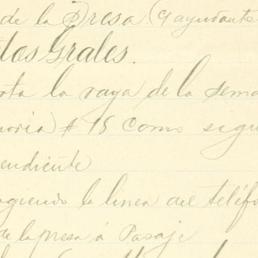 de la Presa (Ayudante
tos Grales.
rta la raya de la sema
noria) # 15 como sigu
endiente
guendo la linea del teléfo
de la presa á Pasaje